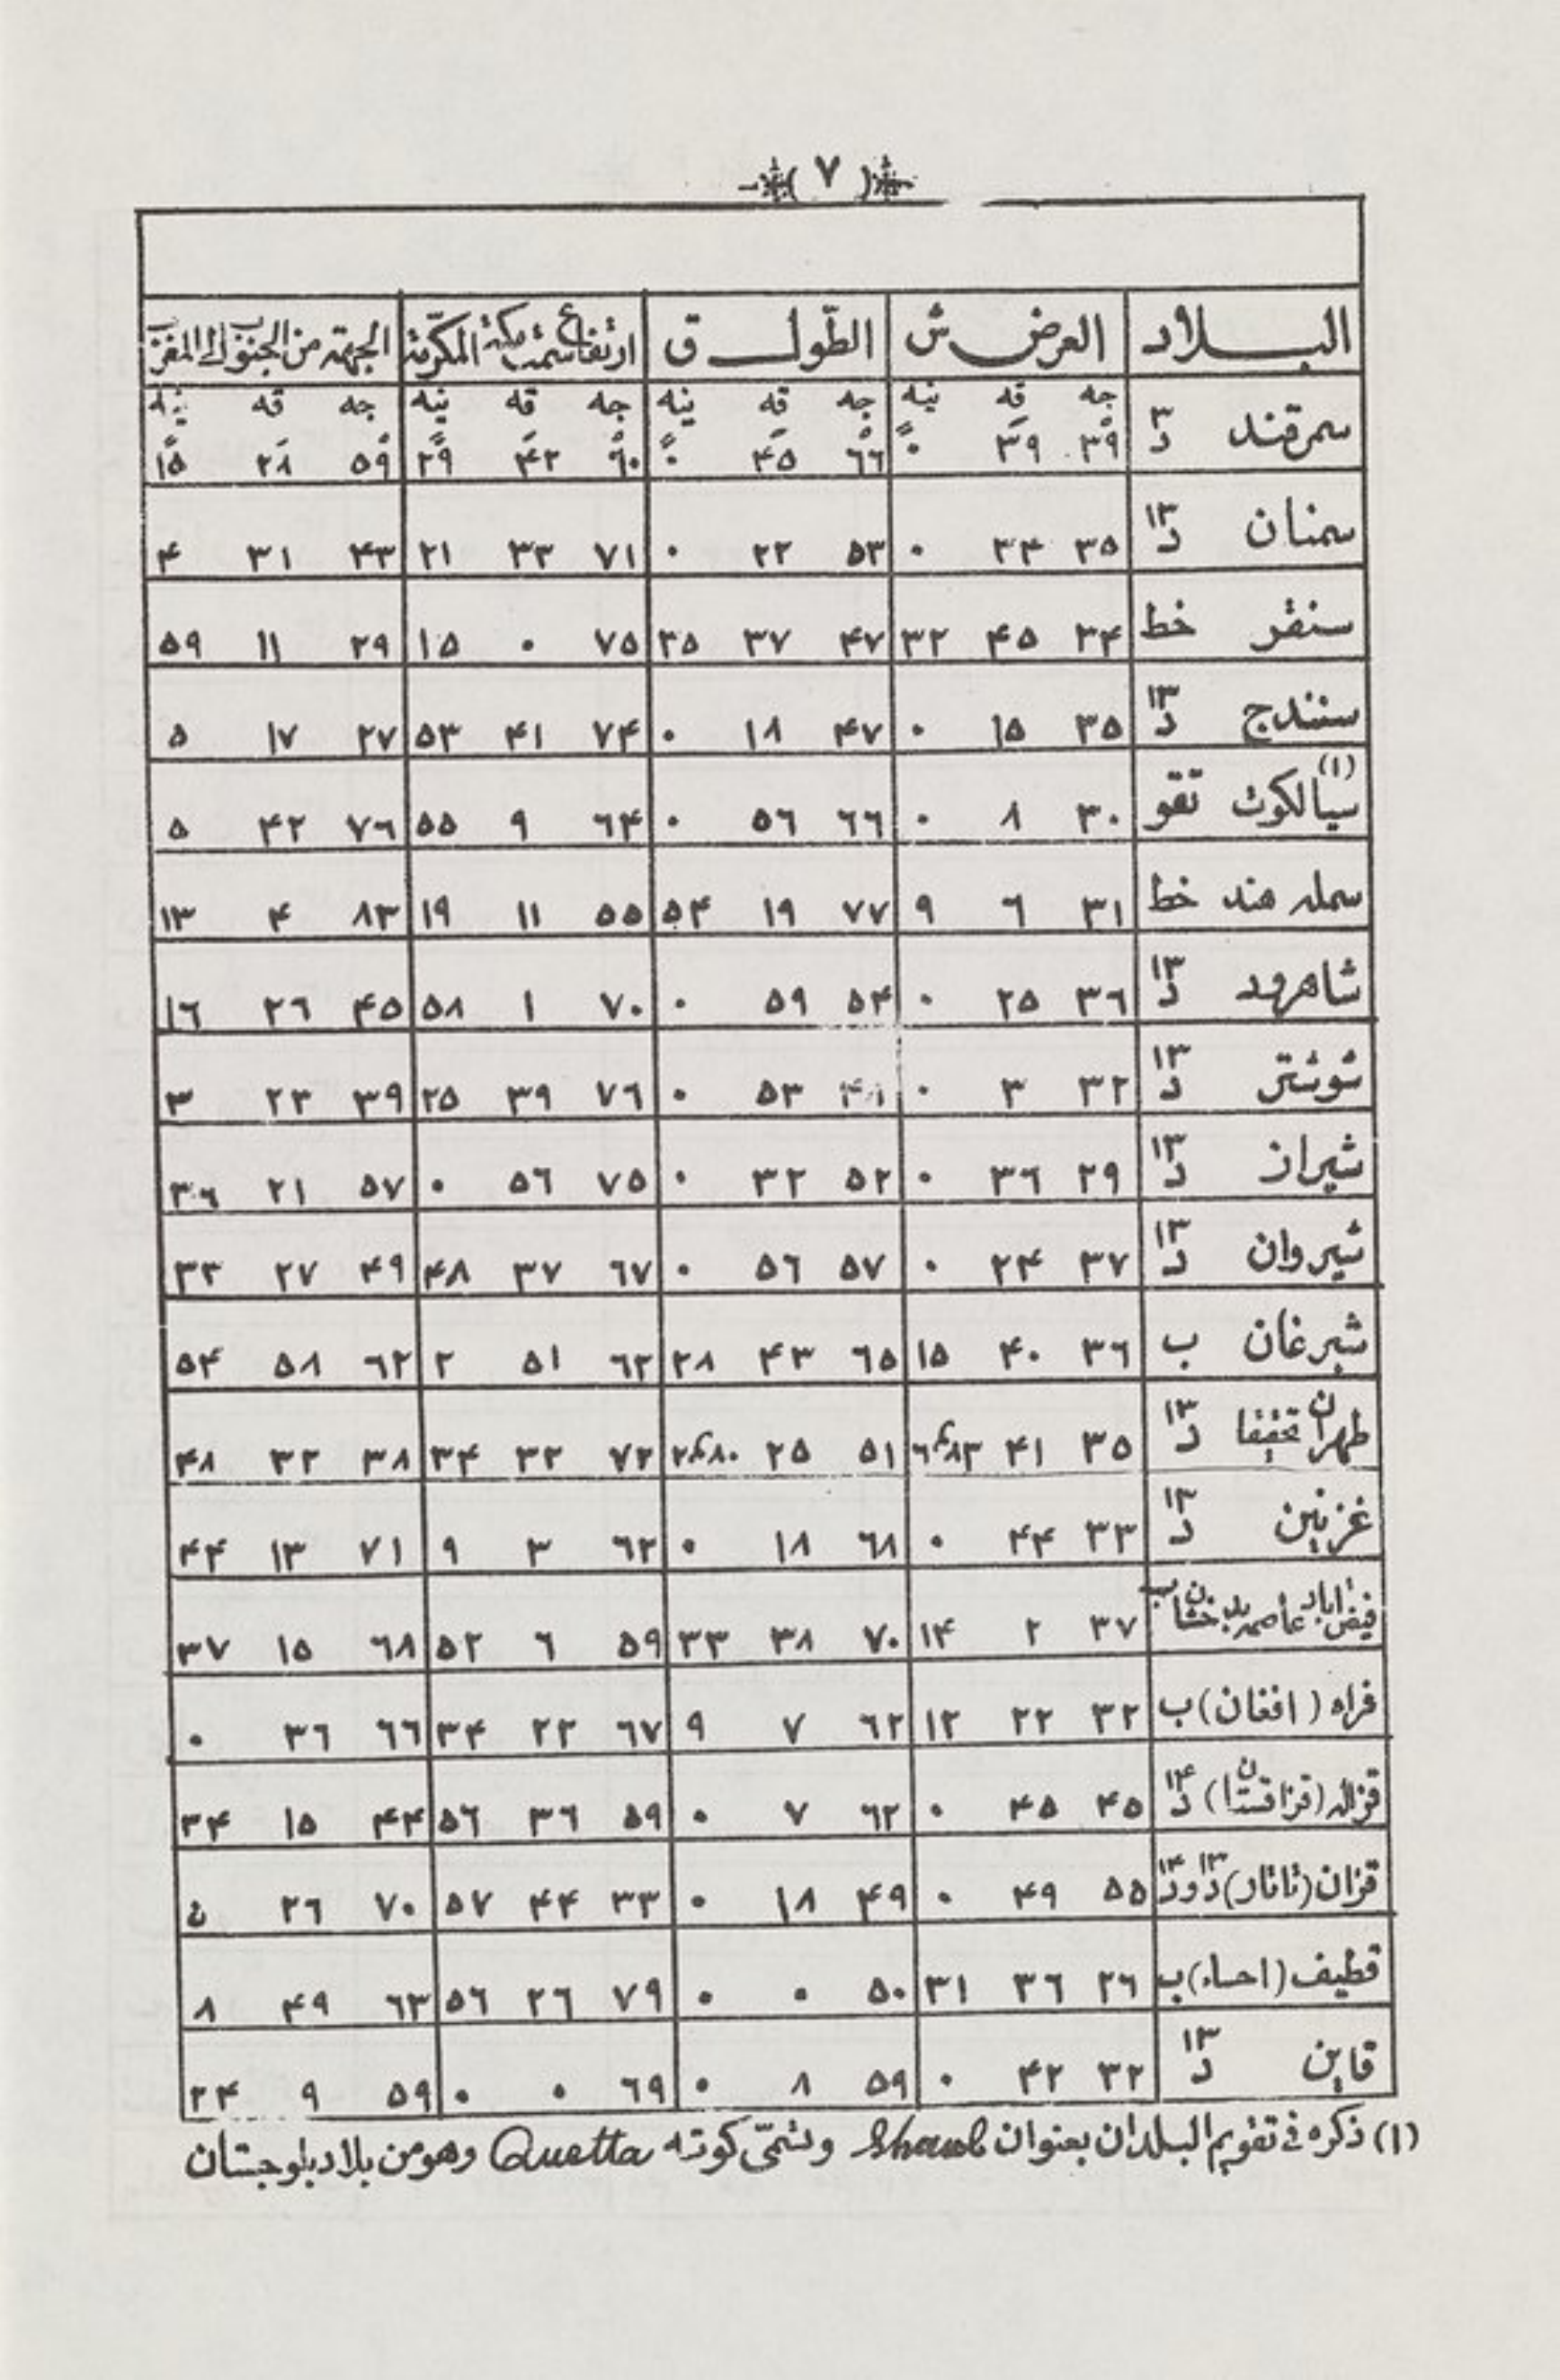 (٧)
البلاد العرض ش الطّول ق ارتفاع سمت مكة المكرّمة الجهة من الجنوب الى المغرب
جه قه نيه جه قه نيه جه قه نيه جه قه نيه
سمرقند د٣ ٣٩ ٣٩ ٠ ٦٦ ٤٥ ٠ ٦٠ ٤٢ ٢٩ ٥٩ ٢٨ ١٥
سمنان د١٣ ٣٥ ٣٤ ٠ ٥٣ ٢٢ ٠ ٧١ ٣٣ ٢١ ٤٣ ٣١ ٤
سنقر خط ٣٤ ٤٥ ٣٢ ٤٧ ٣٧ ٣٥ ٧٥ ٠ ١٥ ٢٩ ١١ ٥٩
سنندج د١٣ ٣٥ ١٥ ٠ ٤٧ ١٨ ٠ ٧٤ ٤١ ٥٣ ٢٧ ١٧ ٥
سيالكوت (١) تقو ٣٠ ٨ ٠ ٦٦ ٥٦ ٠ ٦٤ ٩ ٥٥ ٧٦ ٤٢ ٥
سمله هند خط ٣١ ٦ ٩ ٧٧ ١٩ ٥٤ ٥٥ ١١ ١٩ ٨٣ ٤ ١٣
شاهرود د١٣ ٣٦ ٢٥ ٠ ٥٤ ٥٩ ٠ ٧٠ ١ ٥٨ ٤٥ ٢٦ ١٦
شوشتر د١٣ ٣٢ ٣ ٠ ٥٣ ٠ ٧٦ ٣٩ ٢٥ ٣٩ ٢٣ ٣
شيراز د١٣ ٢٩ ٣٦ ٠ ٥٢ ٣٢ ٠ ٧٥ ٥٦ ٠ ٥٧ ٢١ ٣٦
شيروان د١٣ ٣٧ ٢٤ ٠ ٥٧ ٥٦ ٠ ٦٧ ٣٧ ٤٨ ٤٩ ٢٧ ٣٣
شبرغان ب ٣٦ ٤٠ ١٥ ٦٥ ٤٣ ٢٨ ٦٣ ٥١ ٢ ٦٢ ٥٨ ٥٤
طهران تحقيقا د١٣ ٣٥ ٤١ ٥١ ٢٥ ٧٣ ٣٢ ٣٤ ٣٨ ٣٢ ٤٨
غزنين د١٣ ٣٣ ٤٤ ٠ ٦٨ ١٨ ٠ ٦٣ ٣ ٩ ٧١ ١٣ ٤٤
فيض اباد عاصمة بدخشان ب ٣٧ ٢ ١٤ ٧٠ ٣٨ ٣٣ ٥٩ ٦ ٥٢ ٦٨ ١٥ ٣٧
فراه (افغان) ب ٣٢ ٢٢ ١٢ ٦٢ ٧ ٩ ٦٧ ٢٣ ٣٤ ٦٦ ٣٦ ٠
قزاله (قزاقستان) د١٤ ٤٥ ٤٥ ٠ ٦٢ ٧ ٠ ٥٩ ٣٦ ٥٦ ٤٤ ١٥ ٣٤
قزان (تاتار) د١٣ و د١٤ ٥٥ ٤٩ ٠ ٤٩ ١٨ ٠ ٣٣ ٤٤ ٥٧ ٧٠ ٢٦
قطيف (احساء) ب ٢٦ ٣٦ ٣١ ٥٠ ٠ ٠ ٧٩ ٢٦ ٥٦ ٦٣ ٤٩ ٨
قاين د١٣ ٣٢ ٤٢ ٠ ٥٩ ٨ ٠ ٦٩ ٠ ٠ ٥٩ ٩ ٢٤
(١) ذكره في تقويم البلدان بعنوان وتسمّى كوته Quetta وهو من بلاد بلوجستان